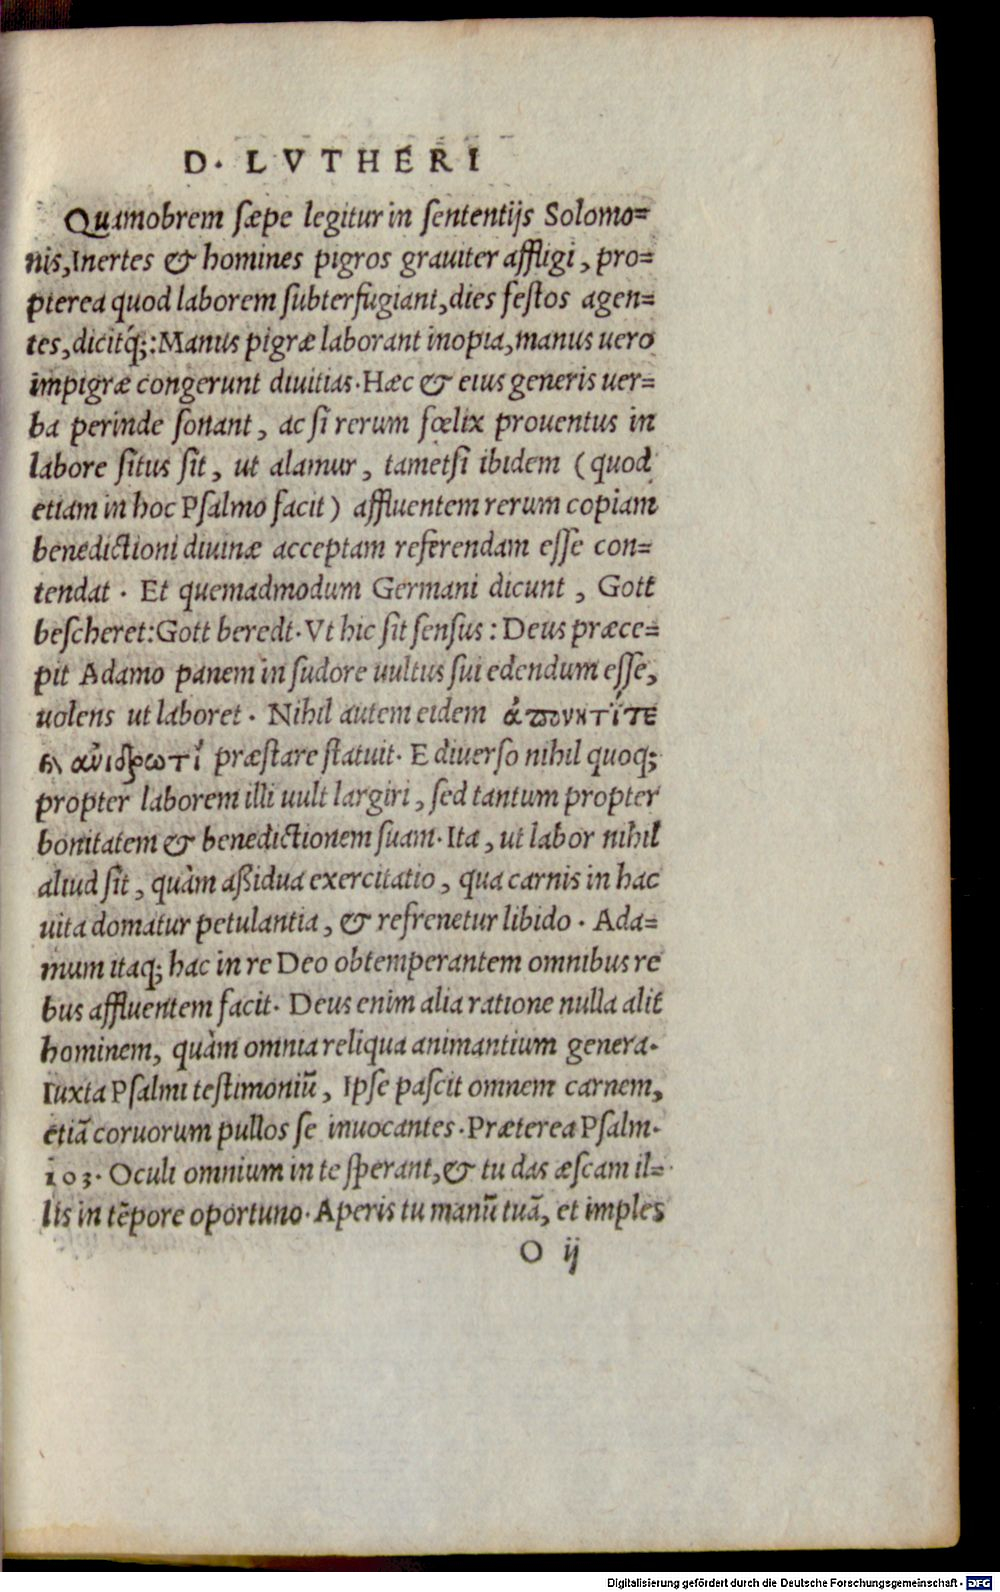 D. LVTHERI
Quamobrem sæpe legitur in sententijs Solomo=
nis, Inertes & homines pigros grauiter affligi, pro=
pterea quod laborem subterfugiant, dies festos agen=
tes, dicitq́;: Manus pigræ laborant inopia, manus uero
impigræ congerunt diuitias. Hæc & eius generis uer=
ba perinde sonant, ac si rerum fœlix prouentus in
labore situs sit, ut alamur, tametsi ibidem (quod
etiam in hoc Psalmo facit) affluentem rerum copiam
benedictioni diuinæ acceptam referendam esse con=
tendat. Et quemadmodum Germani dicunt, Gott
bescheret: Gott beredt. Vt hic sit sensus: Deus præce=
pit Adamo panem in sudore uultus sui edendum esse,
uolens ut laboret. Nihil autem eidem
præstare statuit. E diuerso nihil quoq;
propter laborem illi uult largiri, sed tantum propter
bonitatem & benedictionem suam. Ita, ut labor nihil
aliud sit, quàm aßidua exercitatio, qua carnis in hac
uita domatur petulantia, & refrenetur libido. Ada=
mum itaq; hac in re Deo obtemperantem omnibus re
bus affluentem facit. Deus enim alia ratione nulla alit
hominem, quàm omnia reliqua animantium genera.
Iuxta Psalmi testimoniū, Ipse pascit omnem carnem,
etiā coruorum pullos se inuocantes. Præterea Psalm.
103. Oculi omnium in te sperant, & tu das æscam il=
lis in tēpore oportuno. Aperis tu manū tuā, et imples
O ij
Digitalisierung gefördert durch die Deutsche Forschungsgemeinschaft - DFG